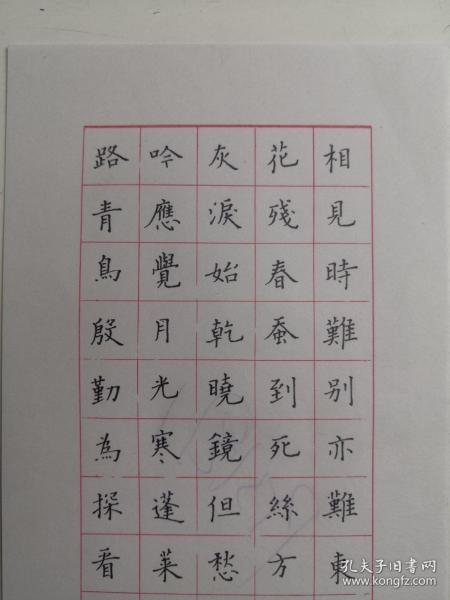 相見時難别亦難東
花殘春蚕到死絲方
灰淚始乾曉鏡但愁
吟應覺月光寒蓬萊
路青鳥殷勤為探看
孔夫子旧书网
www.kongfz.com